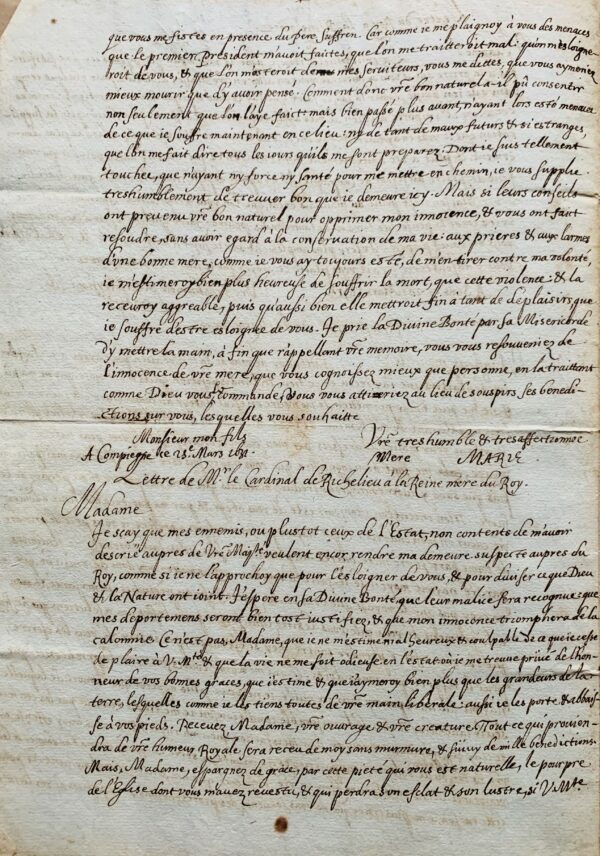 que vous me fistes en presence du Pere Suffren. Car comme ie me plaignoy à vous des menaces
que le premier President m'avoit faites, que l'on me traitteroit mal: qu'on m'esloigne-
roit de vous, & que l'on m'osteroit mes serviteurs, vous me dictes, que vous aymeriez
mieux mourir que d'y avoir pensé. Comment donc vre bon naturel a-il pû consentir
non seulement que l'on l'aye faict: mais bien passé plus avant, n'ayant lors esté menacée
de ce que ie souffre maintenant en ce lieu: ny de tant de maux futurs & si estranges,
que l'on me fait dire tous les iours qu'ils me sont preparez. Dont ie suis tellement
touchée, que n'ayant ny force ny santé pour me mettre en chemin, ie vous supplie
treshumblement de treuver bon que ie demeure icy. Mais si leurs conseils
ont prevenu vre bon naturel pour opprimer mon innocence, & vous ont fait
resoudre, sans avoir egard à la conservation de ma vie: aux prieres & aux larmes
d'vne bonne mere, comme ie vous ay toujours esté, de m'en tirer contre ma volonté,
ie m'estimeroy bien plus heureuse de souffrir la mort, que cette violence: & la
recevroy aggreable, puis qu'aussi bien elle mettroit fin à tant de deplaisirs, que
ie souffre d'estre esloignée de vous. Je prie la Divine Bonté par sa Misericorde
d'y mettre la main, à fin que r'appellant vre memoire, vous vous resouveniez de
l'innocence de vre mere, que vous cognoissez mieux que personne, en la traittant
comme Dieu vous commande, & vous vous attireriez au lieu de souspirs ses benedi-
ctions sur vous, lesquelles vous souhaitte
Monsieur mon fils Vre treshumble & tresaffectionnée
A Compiegne ce 23. Mars 1631. Mere MARIE
Lettre de Mr. le Cardinal de Richelieu à la Reine mere du Roy.
Madame
Je sçay que mes ennemis, ou plustot ceux de l'Estat, non contents de m'avoir
descrié aupres de Vre Majté veulent encor rendre ma demeure suspecte aupres du
Roy, comme si ie ne l'approchoy que pour l'esloigner de vous, & pour diviser ce que Dieu
& la Nature ont ioint. J'espere en sa Divine Bonté, que leur malice sera recognue: que
mes deportemens seront bien tost iustifiez, & que mon innocence triomphera de la
calomnie. Ce n'est pas, Madame, que ie ne m'estime malheureux & coulpable de ce que ie cesse
de plaire à V. Mté & que la vie ne me soit odieuse en l'estat où ie me treuve privé de l'hon-
neur de vos bonnes graces, que i'estime & que i'aymeroy bien plus que les grandeurs de la
terre, lesquelles comme ie les tiens toutes de vre main liberale: aussi ie les porte & abbais-
se à vos pieds. Recevez Madame, vre ouvrage & vre creature. Tout ce qui provien-
dra de vre humeur Royale sera receu de moy sans murmure, & suivy de mille benedictions.
Mais, Madame, espargnez de grace, par cette pieté qui vous est naturelle, le pourpre
de l'Eglise dont vous m'avez revestu, & qui perdra son esclat & son lustre, si V. Mté